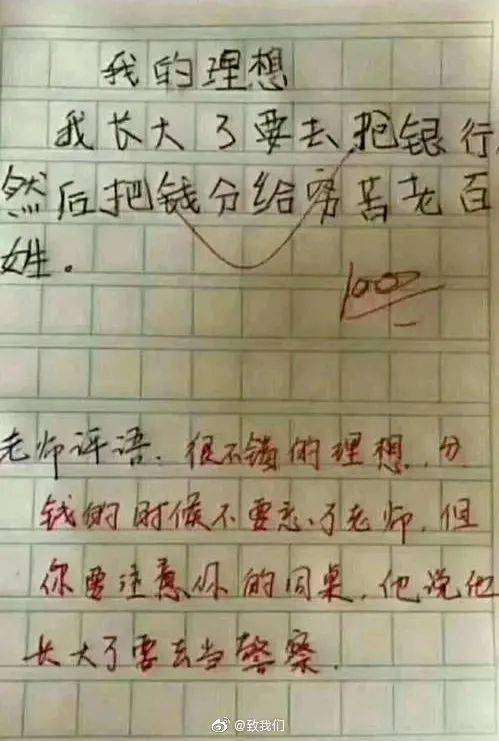 我的理想
我长大了要去抢银行,
然后把钱分给穷苦老百
姓。
100
老师评语:很不错的理想,分
钱的时候不要忘了老师,但
你要注意你的同桌,他说他
长大了要去当警察.
@致我们